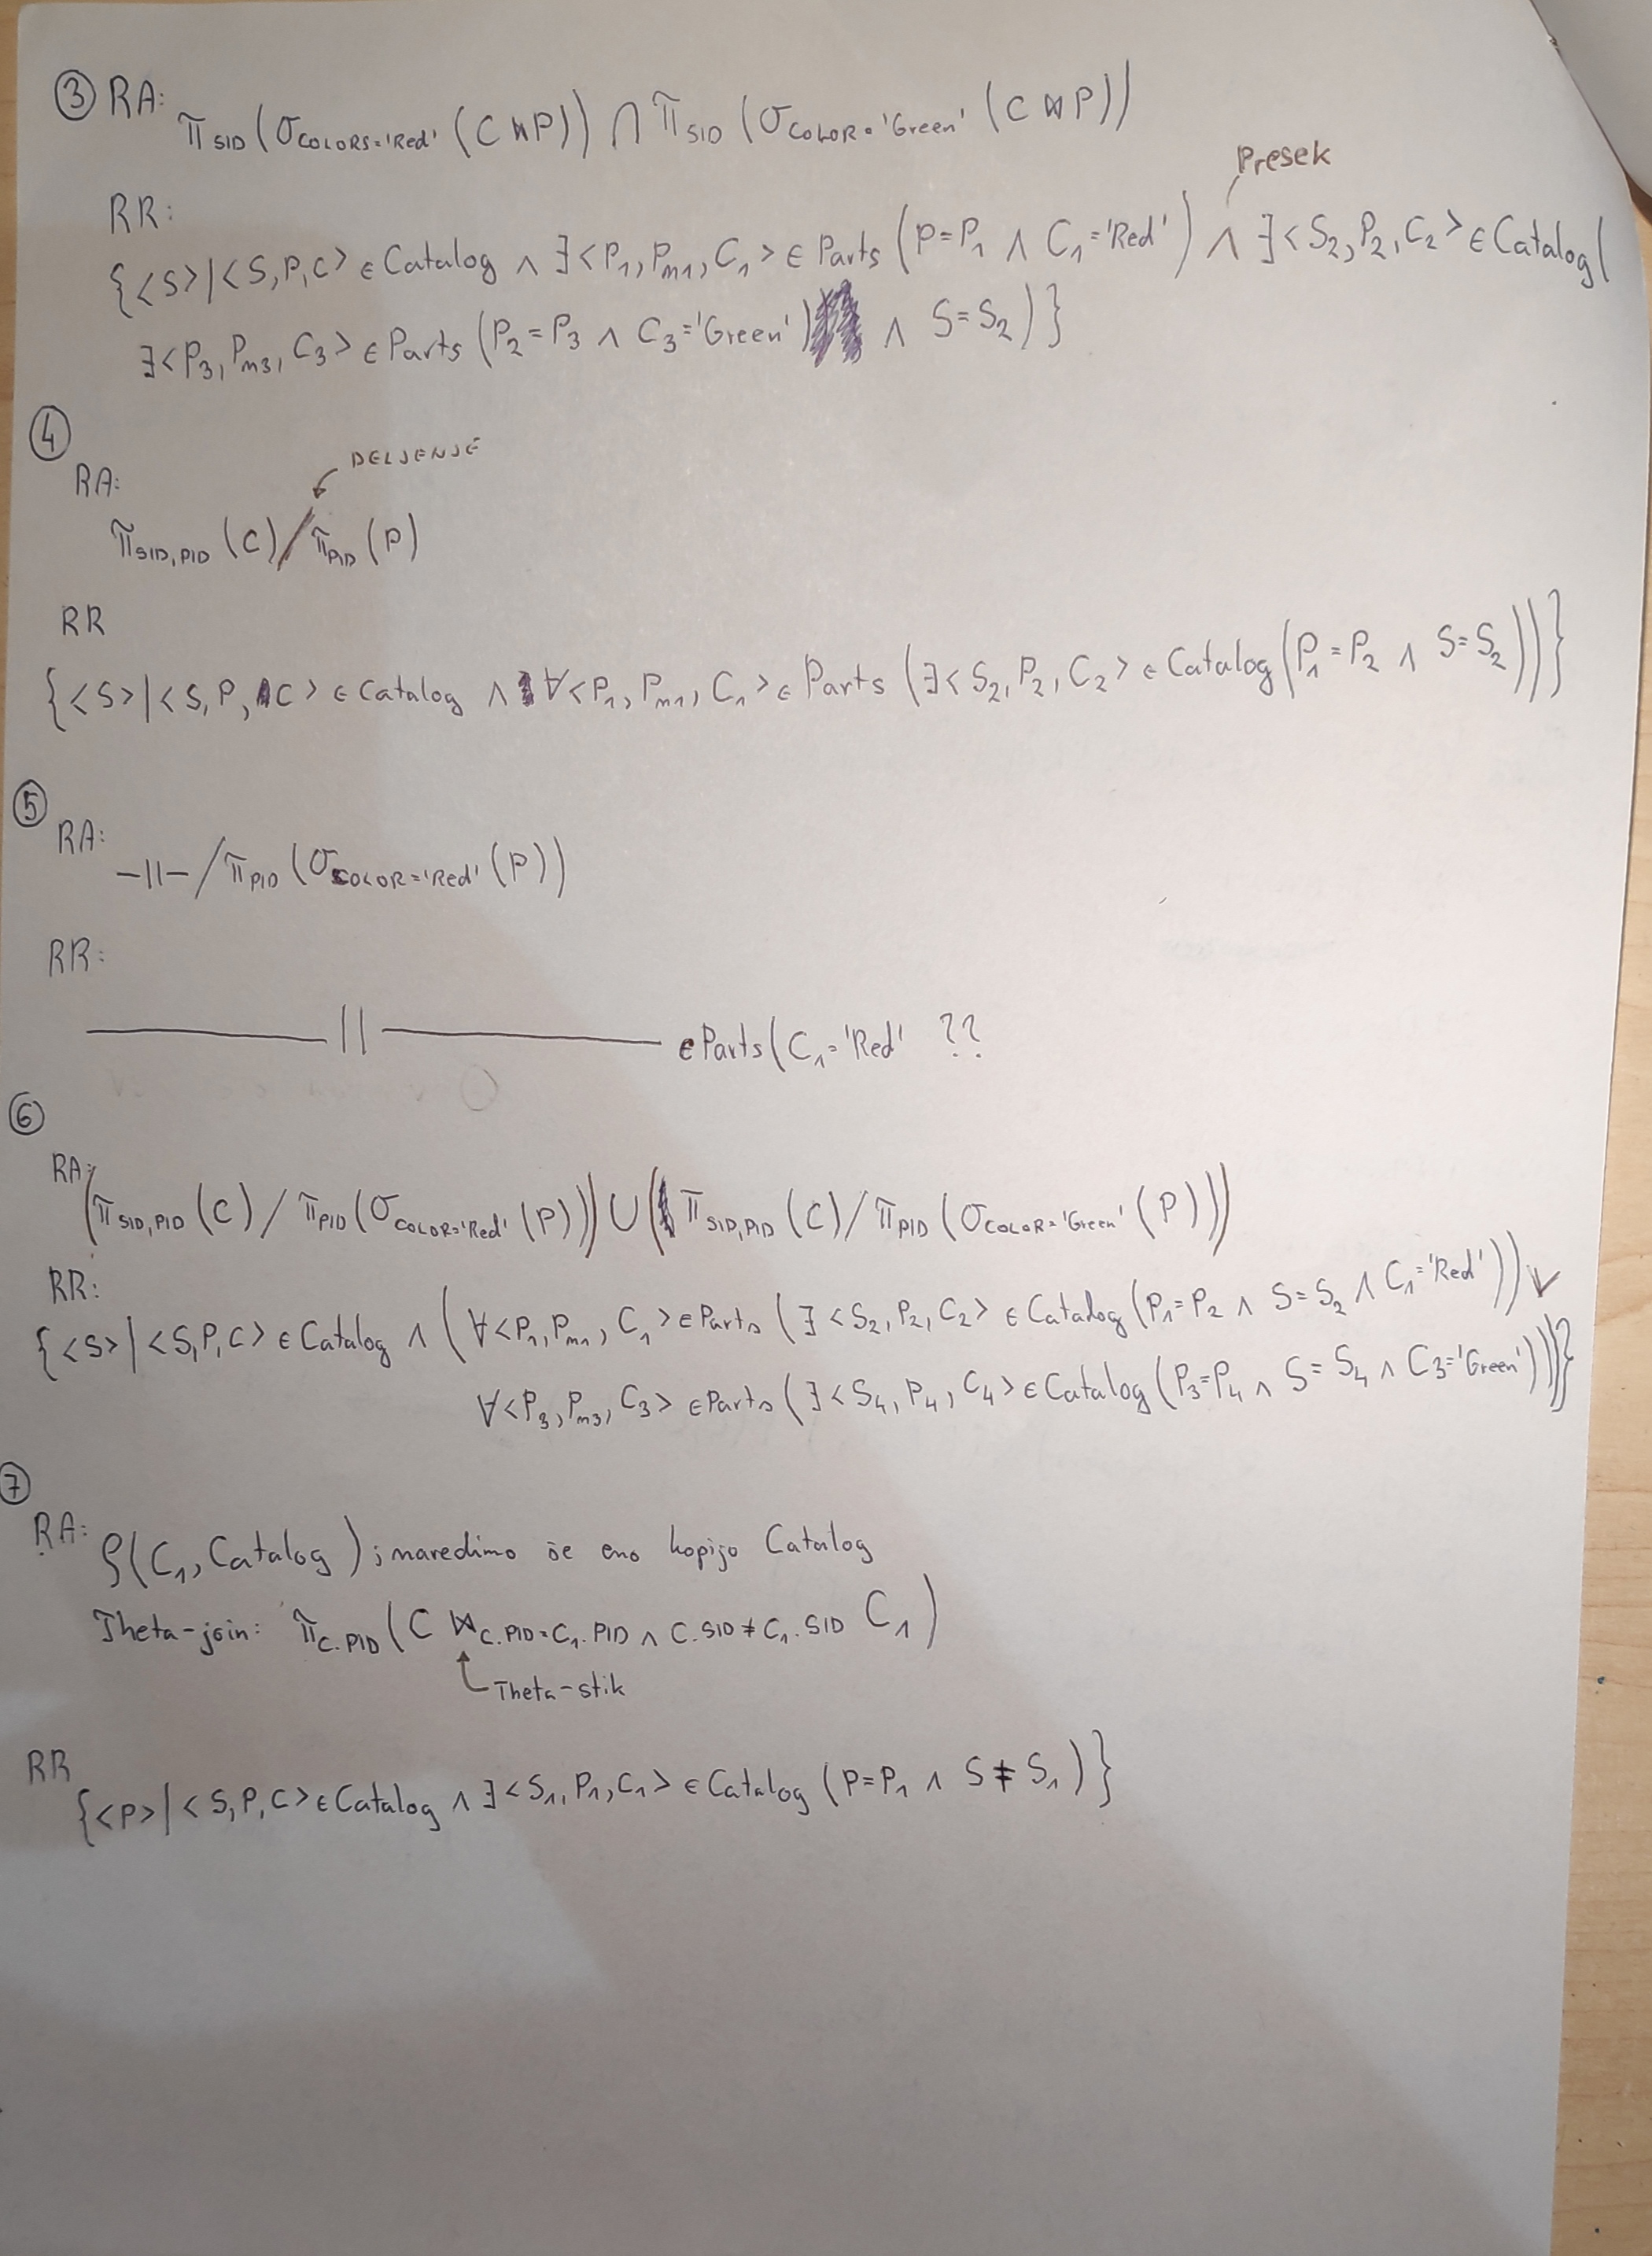 ③ RA:
π SID (σ COLORS='Red' (C ⋈ P)) ∩ π SID (σ COLOR='Green' (C ⋈ P))
Presek
RR:
{<S>|<S,P,C> ∈ Catalog ∧ ∃<P₁, Pₘ₁, C₁> ∈ Parts (P=P₁ ∧ C₁='Red') ∧ ∃<S₂, P₂, C₂> ∈ Catalog(
∃<P₃, Pₘ₃, C₃> ∈ Parts (P₂=P₃ ∧ C₃='Green') ∧ S=S₂)}
④
DELJENJE
RA:
π SID,PID (C) / π PID (P)
RR
{<S>|<S,P,C> ∈ Catalog ∧ ∀<P₁, Pₘ₁, C₁> ∈ Parts (∃<S₂, P₂, C₂> ∈ Catalog(P₁=P₂ ∧ S=S₂))}
⑤
RA: –||– / π PID (σ COLOR='Red' (P))
RR:
——— || ——— ∈ Parts(C₁='Red' ??
⑥
RA:
(π SID,PID (C) / π PID (σ COLOR='Red' (P))) ∪ (π SID,PID (C) / π PID (σ COLOR='Green' (P)))
RR:
{<S>|<S,P,C> ∈ Catalog ∧ (∀<P₁, Pₘ₁, C₁> ∈ Parts (∃<S₂, P₂, C₂> ∈ Catalog (P₁=P₂ ∧ S=S₂ ∧ C₁='Red')) ∨
∀<P₃, Pₘ₃, C₃> ∈ Parts (∃<S₄, P₄, C₄> ∈ Catalog (P₃=P₄ ∧ S=S₄ ∧ C₃='Green')))}
⑦
RA: ρ(C₁, Catalog); naredimo še eno kopijo Catalog
Theta-join: π C.PID (C ⋈ C.PID=C₁.PID ∧ C.SID≠C₁.SID C₁)
Theta-stik
RR
{<P>|<S,P,C> ∈ Catalog ∧ ∃<S₁, P₁, C₁> ∈ Catalog (P=P₁ ∧ S≠S₁)}